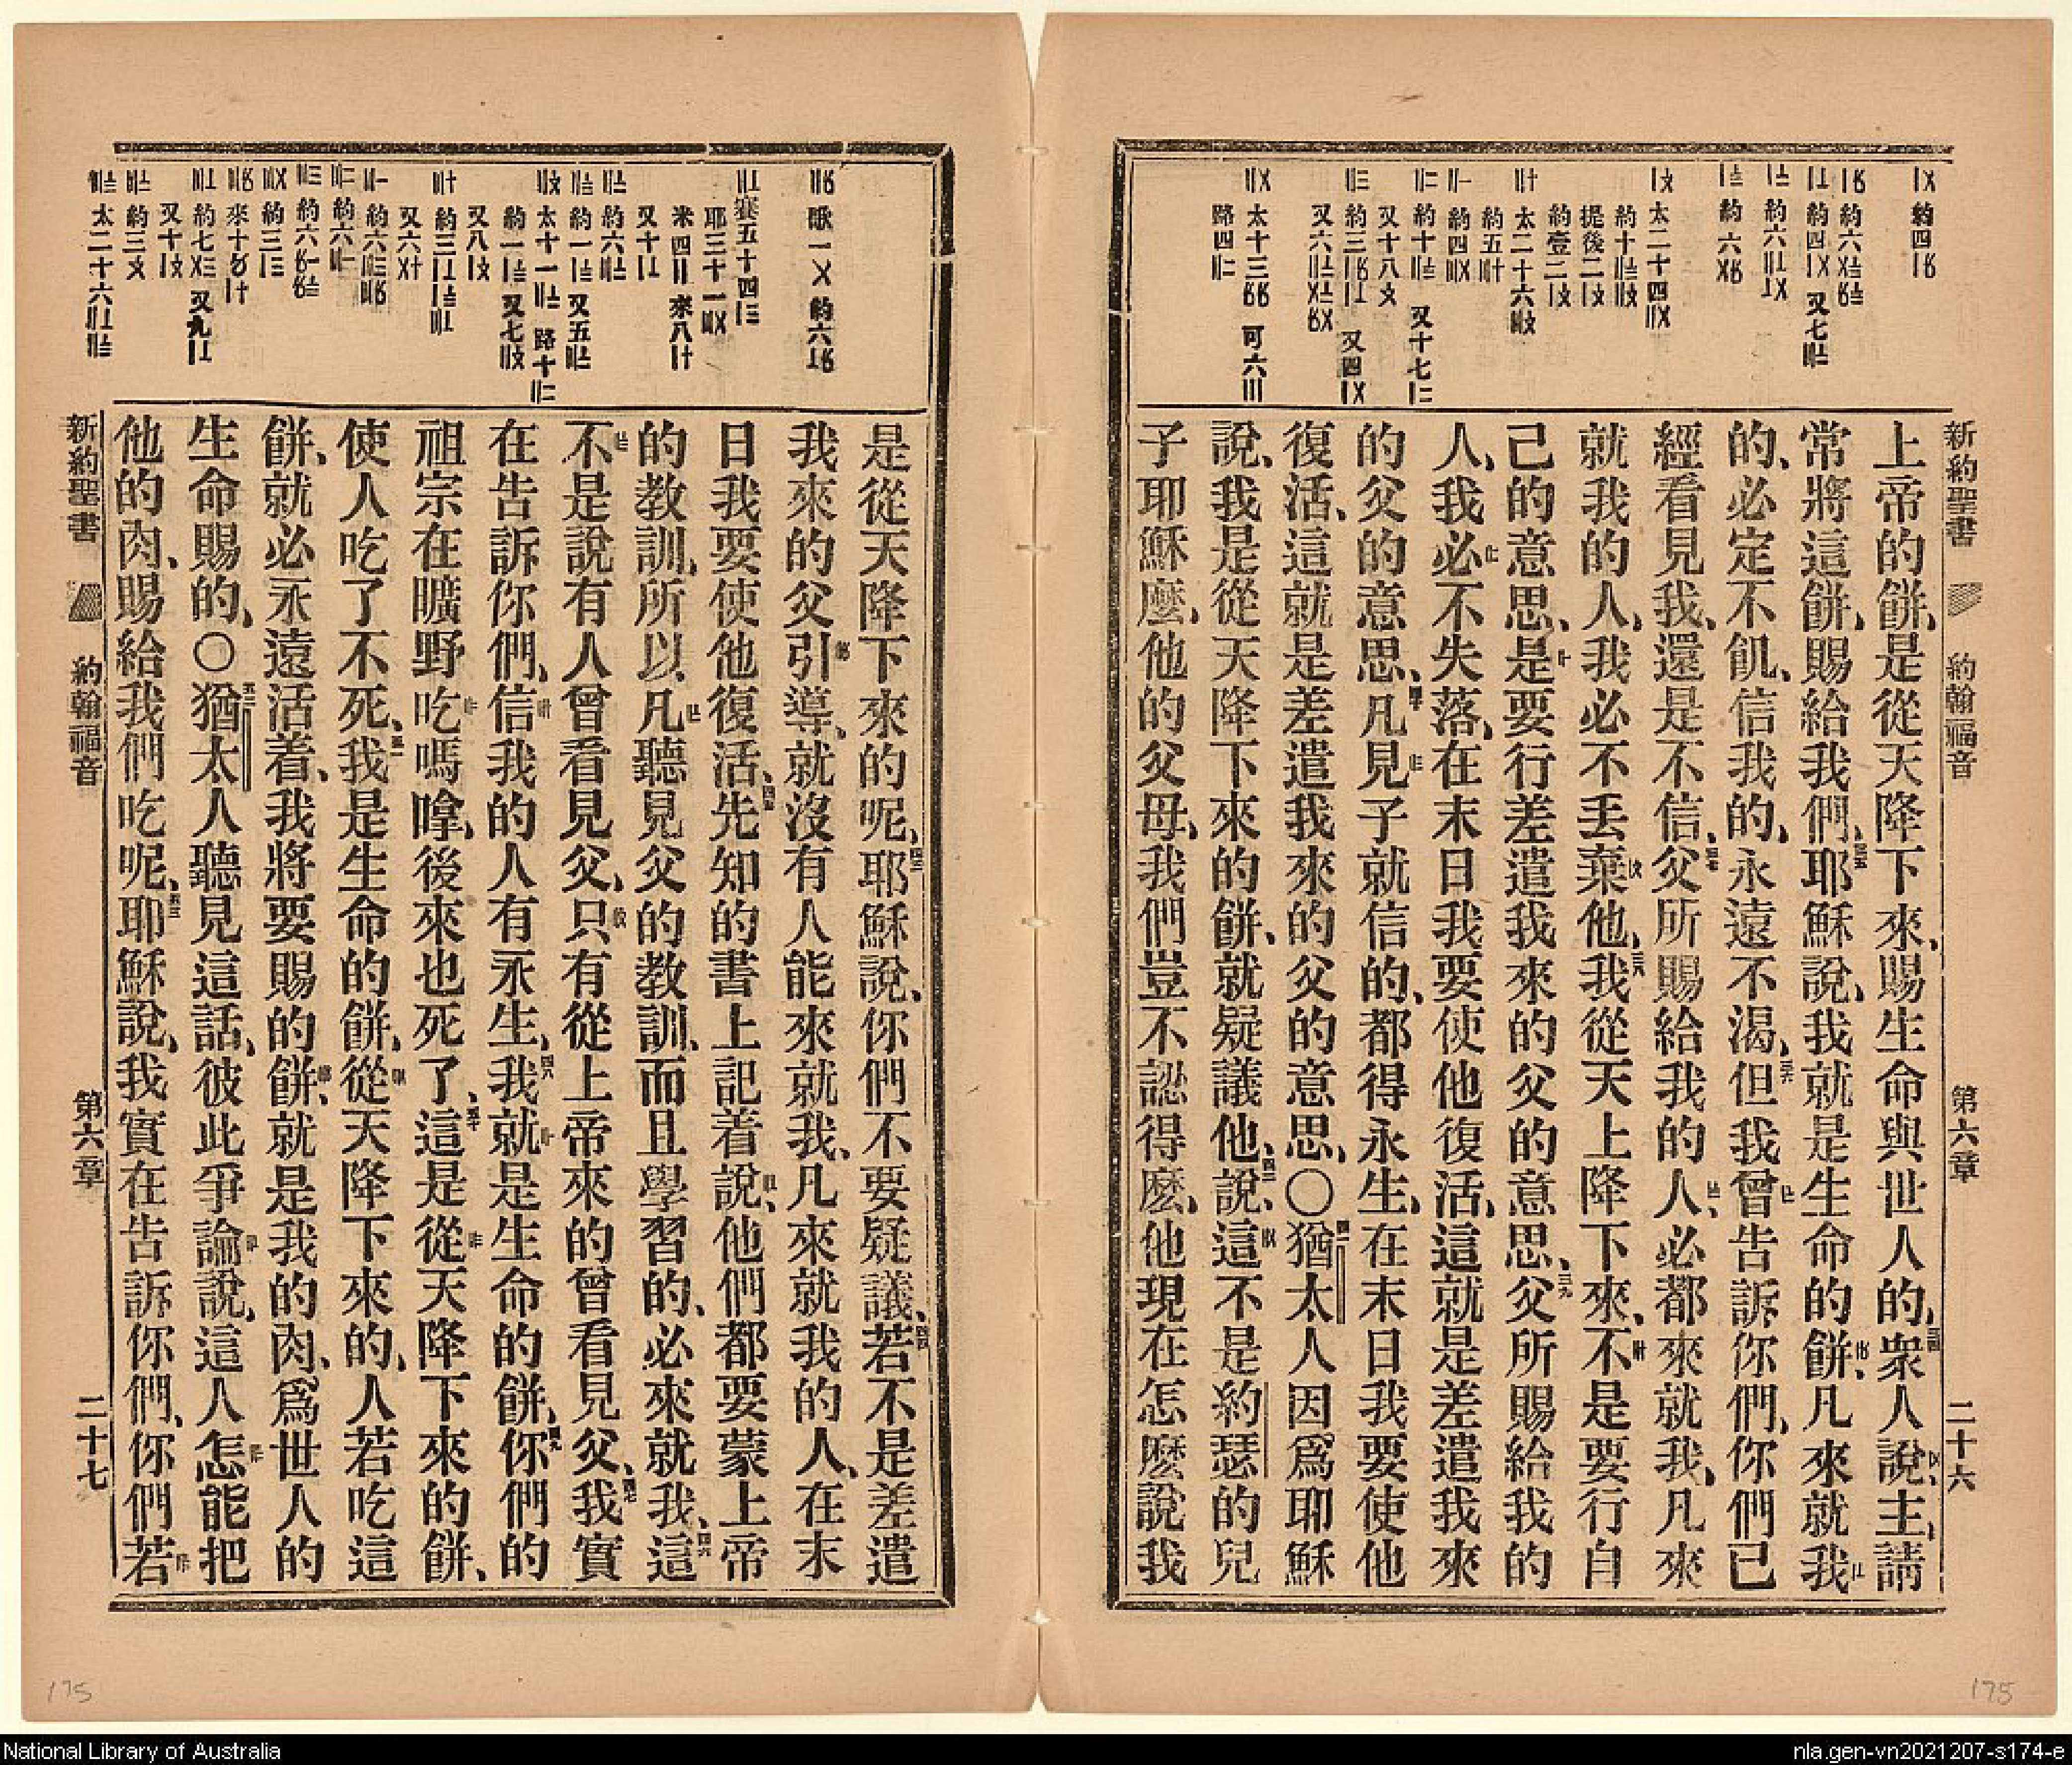 新約聖書 約翰福音 第六章 二十六
上帝的餅、是從天降下來、賜生命與世人的、衆人說、主、請
常將這餅、賜給我們、耶穌說、我就是生命的餅、凡來就我
的、必定不飢、信我的、永遠不渴、但我曾告訴你們、你們已
經看見我、還是不信、父所賜給我的人、必都來就我、凡來
就我的人、我必不丟棄他、我從天上降下來、不是要行自
己的意思、是要行差遣我來的父的意思、父所賜給我的
人、我必不失落、在末日我要使他復活、這就是差遣我來
的父的意思、凡見子就信的、都得永生、在末日我要使他
復活、這就是差遣我來的父的意思、〇猶太人因爲耶穌
說、我是從天降下來的餅、就疑議他、說、這不是約瑟的兒
子耶穌麽、他的父母、我們豈不認得麽、他現在怎麽說我
175
是從天降下來的呢、耶穌說、你們不要疑議、若不是差遣
我來的父引導、就沒有人能來就我、凡來就我的人、在末
日我要使他復活、先知的書上記着說、他們都要蒙上帝
的教訓、所以凡聽見父的教訓、而且學習的、必來就我、這
不是說有人曾看見父、只有從上帝來的曾看見父、我實
在告訴你們、信我的人有永生、我就是生命的餅、你們的
祖宗在曠野吃嗎嗱、後來也死了、這是從天降下來的餅、
使人吃了不死、我是生命的餅、從天降下來的、人若吃這
餅、就必永遠活着、我將要賜的餅、就是我的肉、爲世人的
生命賜的、〇猶太人聽見這話、彼此爭論說、這人怎能把
他的肉、賜給我們吃呢、耶穌說、我實在告訴你們、你們若
新約聖書 約翰福音 第六章 二十七
175
National Library of Australia
nla.gen-vn2021207-s174-e